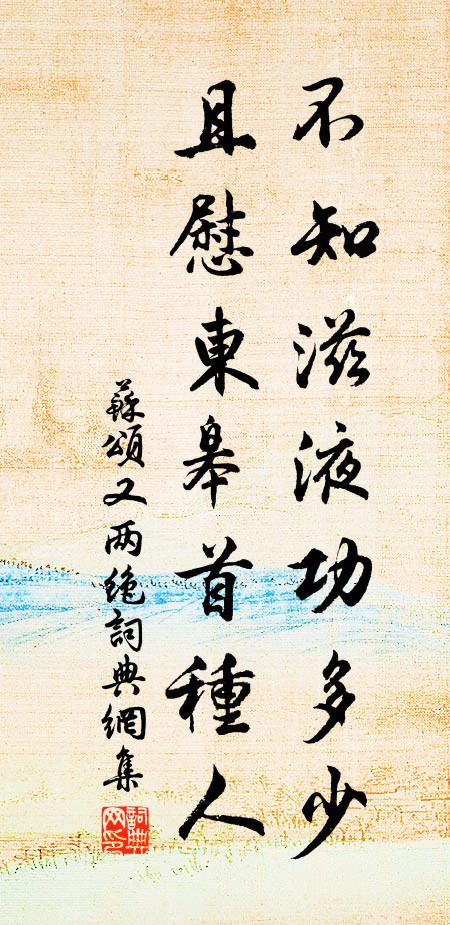 不知滋液功多少
且慰東皋首種人
蘇頌又两絶詞典網集
詞典网印